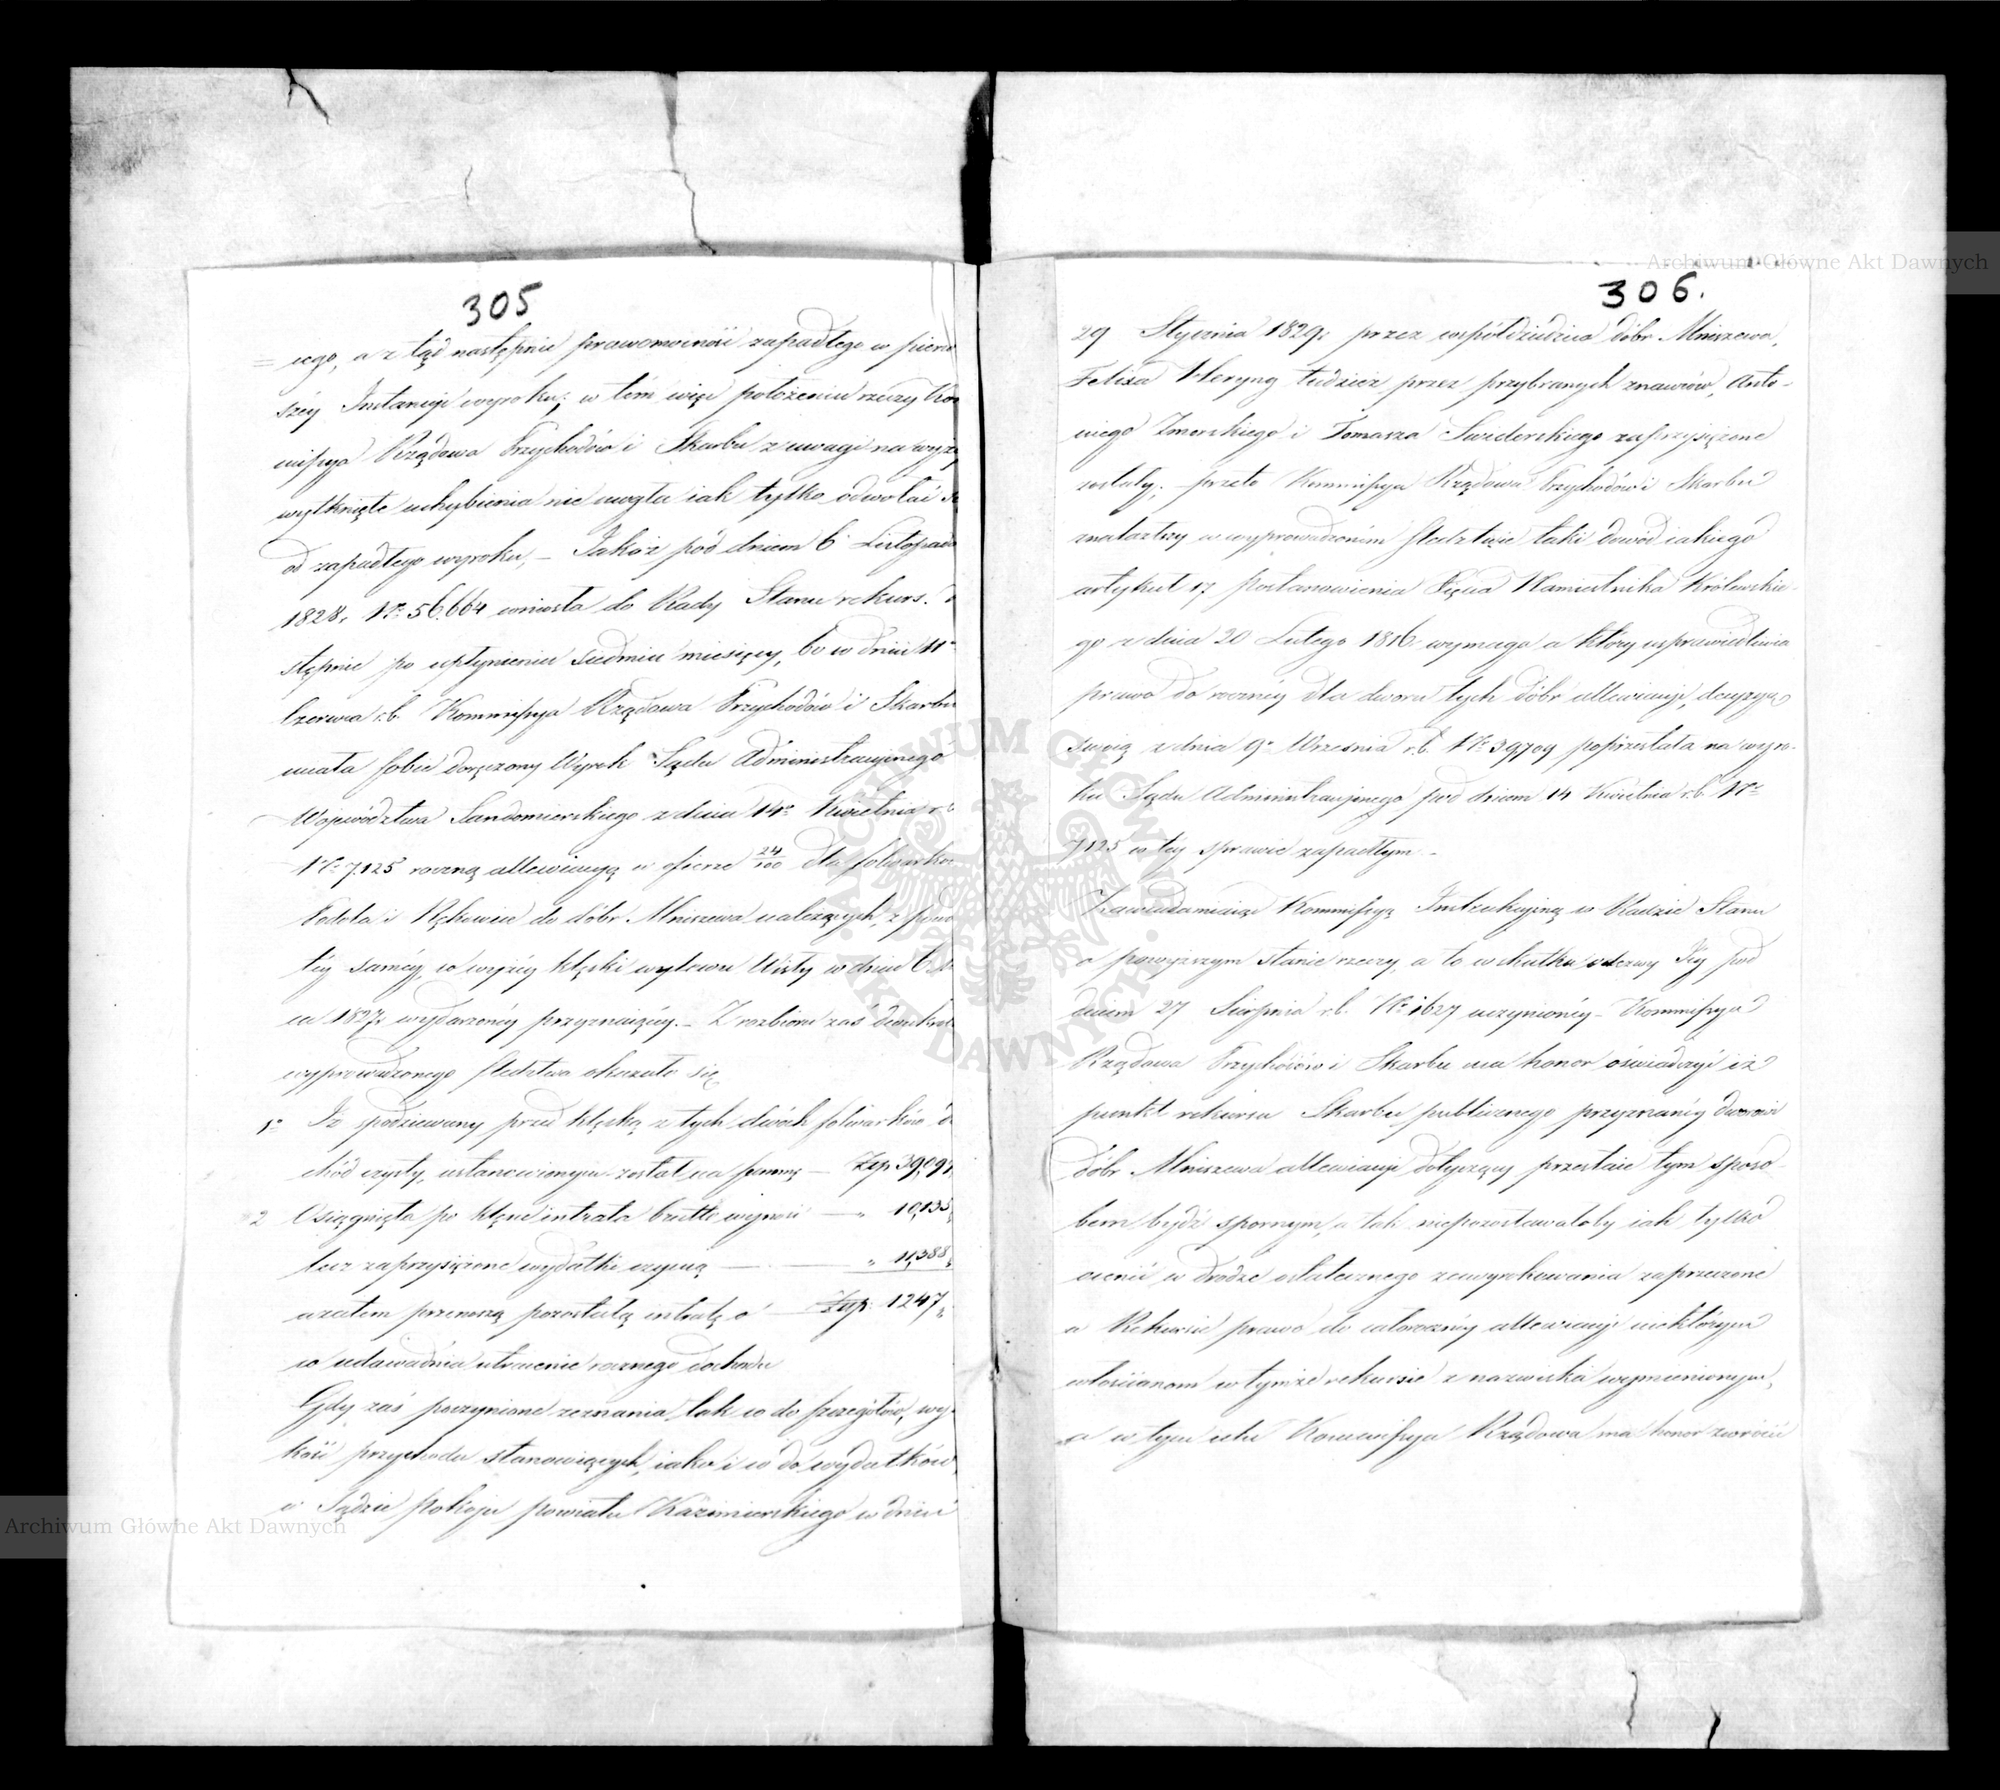 305
=cego, a z tąd następnie prawomocności zapadłego w pierw
széy Instancyi wyroku; w tém więc położeniu rzeczy Kom
missya Rządowa Przychodów i Skarbu z uwagi na wyżéy
wytknięte uchybienia nie mogła iak tylko odwołać s
od zapadłego wyroku, – Jakoż pod dniem 6° Listopada
1828 r. N° 56,664 wniosła do Rady Stanu rekurs.
stępnie po upłynieniu siedmiu miesięcy, bo w dniu 11°
Czerwca r.b. Kommissya Rządowa Przychodów i Skarbu
miała sobie doręczony Wyrok Sądu Administracyjnego
Województwa Sandomierskiego z dnia 14° Kwietnia r.b.
N° 7,125 roczną allewiacyą w sferze 24/100 dla folwarków
Podola i Rękowice do dóbr Mniszewa należących, z powo
téy saméy, co wyżéy klęski wylewu Wisły w dniu 6
ca 1827 r. wydarzonéy przyznaiący. – Z rozbioru zaś dwukrot
wyprowadzonego śledztwa okazało się
1° Iż spodziewany przed klęską z tych dwóch folwarków d
chód czysty, ustanowionym został na summę — Złp. 39,09
2 Osiągnięta po klęsce intrata brutto wynosi — „ 10,135
lecz zaprzysiężone wydatki czynią — — „ 11,388
a zatem przenoszą pozostałą intratę o — Złp. 1247 „
co udowadnia utracenie rocznego dochodu
Gdy zaś poczynione zeznania tak co do szczegółów, wy-
kość przychodu stanowiących, iako i co do wydatków,
w Sądzie Pokoju powiatu Kazimierskiego w dniu
306.
29 Stycznia 1829 r. przez współdziedzica dóbr Mniszewa,
Felixa Heryng tudzież przez przybranych znawców, Anto-
niego Zmorskiego i Tomasza Swiderskiego zaprzysiężone
zostały; przeto Kommissya Rządowa Przychodów i Skarbu
znalazłszy w wyprowadzoném śledztwie taki dowód iakiego
artykuł 17 postanowienia Xięcia Namiestnika Królewskie-
go z dnia 20 Lutego 1816 wymaga a który usprawiedliwia
prawo do rocznéy dla dworu tych dóbr allewiacyi, decyzyą
swoią z dnia 9° Września r.b. N° 39,709 poprzestała na wyro-
ku Sądu Administracyjnego pod dniem 14 Kwietnia r.b. N°
7,125 w téy sprawie zapadłym –
Zawiadamiaiąc Kommissyą Instrukcyjną w Radzie Stanu
o powyższym stanie rzeczy, a to w skutku odezwy Jéy pod
dniem 27 Sierpnia r.b. N° 1627 uczynionéy – Kommissya
Rządowa Przychodów i Skarbu ma honor oświadczyć iż
punkt rekursu Skarbu publicznego przyznanéy dworowi
dóbr Mniszewa allewiacyi dotyczący przestaie tym sposo-
bem bydź spornym, a tak niepozostawałoby iak tylko
ocenić w drodze ostatecznego zawyrokowania zaprzeczone
w Rekursie prawo do całorocznéy allewiacyi niektórym
włościanom w tymże rekursie z nazwiska wymienionym,
w tym celu Kommissya Rządowa ma honor zwrócić
Archiwum Główne Akt Dawnych